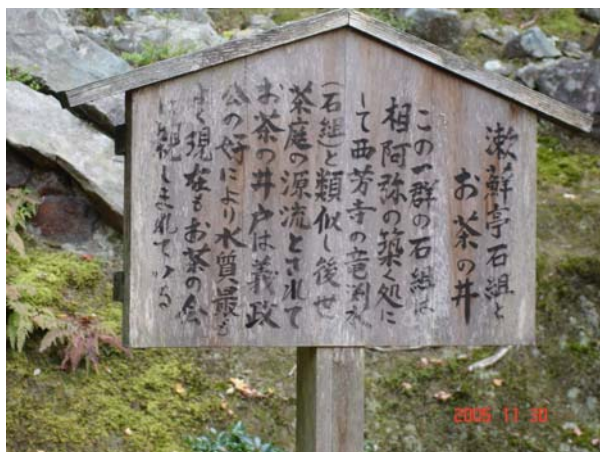 漱蘚亭石組と
お茶の井
この一群の石組は
相阿弥の築く処に
して西芳寺の竜渕水
(石組)と類似し後世
茶庭の源流とされて
お茶の井戸は義政
公の好により水質最も
よく現在もお茶の会
に親しまれている
2005 11 30